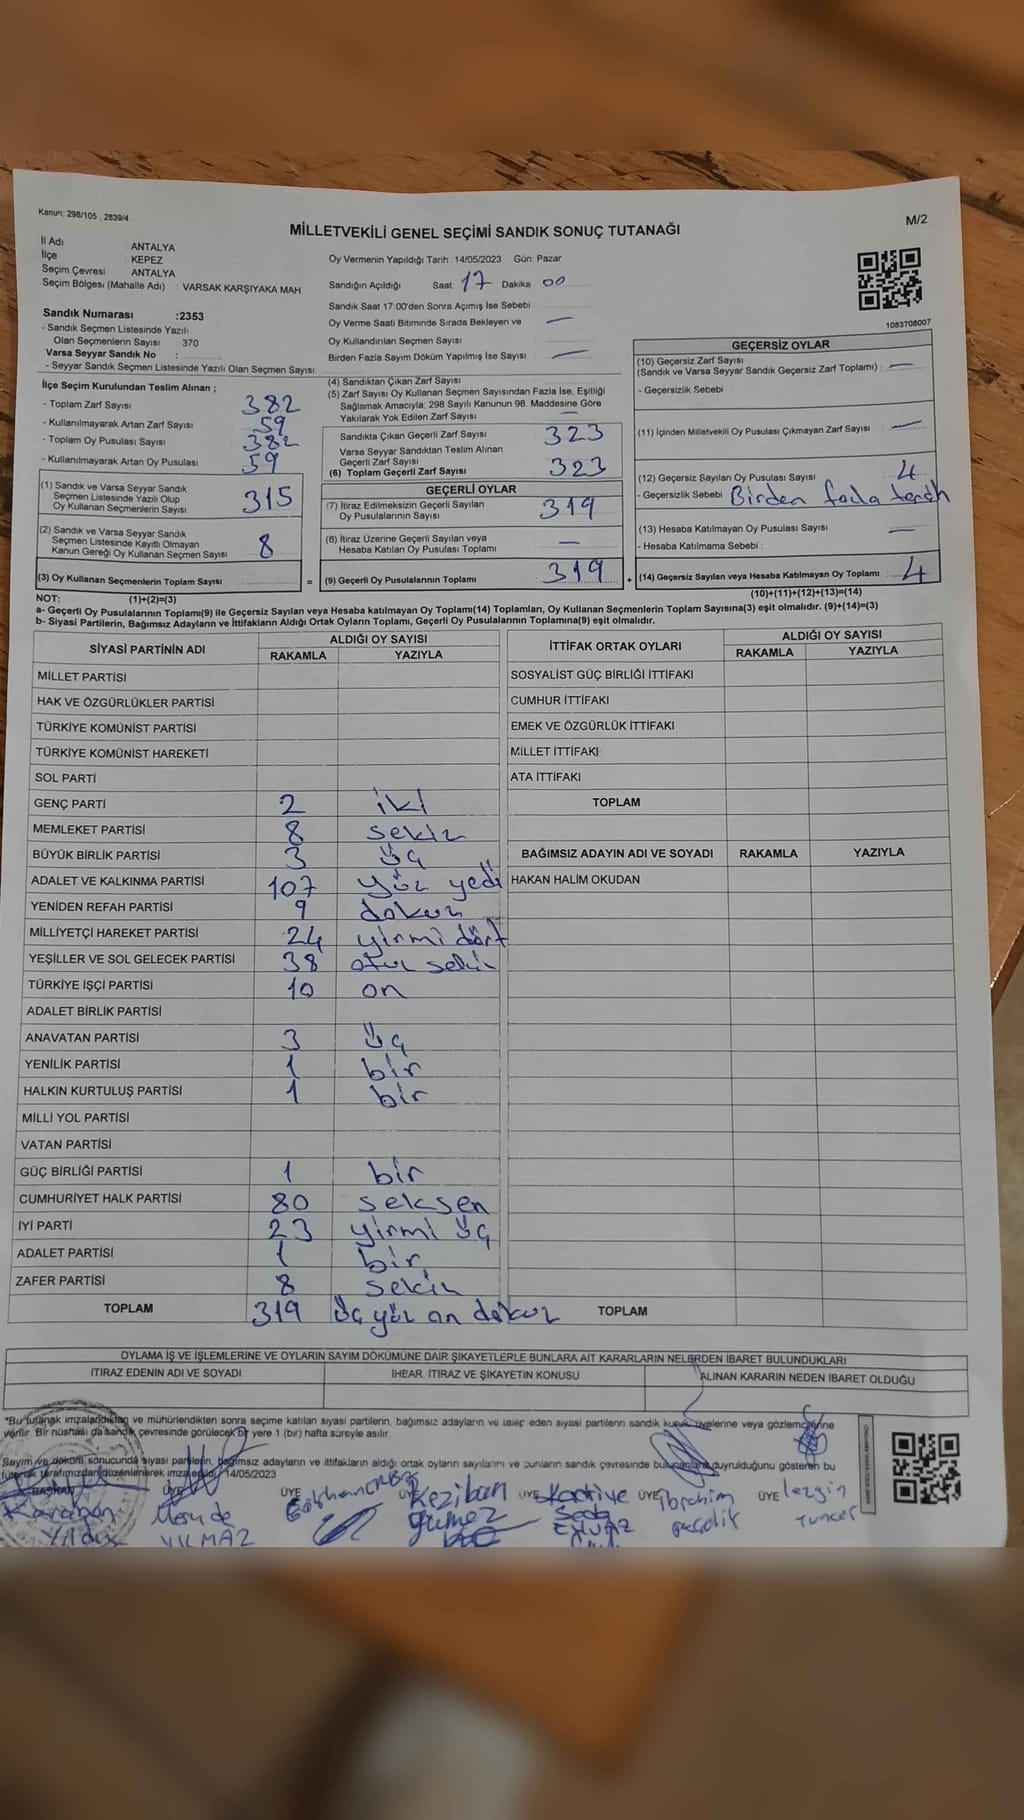 Kanun; 298/105 , 2839/4
M/2
MİLLETVEKİLİ GENEL SEÇİMİ SANDIK SONUÇ TUTANAĞI
İl Adı ANTALYA
İlçe KEPEZ
Seçim Çevresi ANTALYA
Seçim Bölgesi (Mahalle Adı) : VARSAK KARŞIYAKA MAH
Oy Vermenin Yapıldığı Tarih :14/05/2023 Gün: Pazar
Sandığın Açıldığı Saat: 17 Dakika 00
Sandık Saat 17:00'den Sonra Açımış İse Sebebi
Oy Verme Saati Bitiminde Sırada Bekleyen ve —
Oy Kullandırılan Seçmen Sayısı
Birden Fazla Sayım Döküm Yapılmış İse Sayısı —
Sandık Numarası :2353
- Sandık Seçmen Listesinde Yazılı
Olan Seçmenlerin Sayısı : 370
Varsa Seyyar Sandık No :
- Seyyar Sandık Seçmen Listesinde Yazılı Olan Seçmen Sayısı:
1083708007
İlçe Seçim Kurulundan Teslim Alınan ;
- Toplam Zarf Sayısı 382
- Kullanılmayarak Artan Zarf Sayısı 59
- Toplam Oy Pusulası Sayısı 382
- Kullanılmayarak Artan Oy Pusulası 59
(1) Sandık ve Varsa Seyyar Sandık
Seçmen Listesinde Yazılı Olup
Oy Kullanan Seçmenlerin Sayısı 315
(2) Sandık ve Varsa Seyyar Sandık
Seçmen Listesinde Kayıtlı Olmayan
Kanun Gereği Oy Kullanan Seçmen Sayısı 8
(3) Oy Kullanan Seçmenlerin Toplam Sayısı =
(4) Sandıktan Çıkan Zarf Sayısı
(5) Zarf Sayısı Oy Kullanan Seçmen Sayısından Fazla İse, Eşitliği
Sağlamak Amacıyla; 298 Sayılı Kanunun 98. Maddesine Göre
Yakılarak Yok Edilen Zarf Sayısı —
Sandıkta Çıkan Geçerli Zarf Sayısı 323
Varsa Seyyar Sandıktan Teslim Alınan
Geçerli Zarf Sayısı
(6) Toplam Geçerli Zarf Sayısı 323
GEÇERLİ OYLAR
(7) İtiraz Edilmeksizin Geçerli Sayılan
Oy Pusulalarının Sayısı 319
(8) İtiraz Üzerine Geçerli Sayılan veya
Hesaba Katılan Oy Pusulası Toplamı —
(9) Geçerli Oy Pusulalarının Toplamı 319 +
GEÇERSİZ OYLAR
(10) Geçersiz Zarf Sayısı
(Sandık ve Varsa Seyyar Sandık Geçersiz Zarf Toplamı) : —
- Geçersizlik Sebebi :
(11) İçinden Milletvekili Oy Pusulası Çıkmayan Zarf Sayısı : —
(12) Geçersiz Sayılan Oy Pusulası Sayısı : 4
- Geçersizlik Sebebi : Birden fazla tercih
(13) Hesaba Katılmayan Oy Pusulası Sayısı : —
- Hesaba Katılmama Sebebi :
(14) Geçersiz Sayılan veya Hesaba Katılmayan Oy Toplamı : 4
(10)+(11)+(12)+(13)=(14)
NOT: (1)+(2)=(3)
a- Geçerli Oy Pusulalarının Toplamı(9) ile Geçersiz Sayılan veya Hesaba katılmayan Oy Toplamı(14) Toplamları, Oy Kullanan Seçmenlerin Toplam Sayısına(3) eşit olmalıdır. (9)+(14)=(3)
b- Siyasi Partilerin, Bağımsız Adayların ve İttifakların Aldığı Ortak Oyların Toplamı, Geçerli Oy Pusulalarının Toplamına(9) eşit olmalıdır.
SİYASİ PARTİNİN ADI ALDIĞI OY SAYISI
RAKAMLA YAZIYLA
MİLLET PARTİSİ
HAK VE ÖZGÜRLÜKLER PARTİSİ
TÜRKİYE KOMÜNİST PARTİSİ
TÜRKİYE KOMÜNİST HAREKETİ
SOL PARTİ
GENÇ PARTİ 2 iki
MEMLEKET PARTİSİ 8 sekiz
BÜYÜK BİRLİK PARTİSİ 3 üç
ADALET VE KALKINMA PARTİSİ 107 yüz yedi
YENİDEN REFAH PARTİSİ 9 dokuz
MİLLİYETÇİ HAREKET PARTİSİ 24 yirmi dört
YEŞİLLER VE SOL GELECEK PARTİSİ 38 otuz sekiz
TÜRKİYE İŞÇİ PARTİSİ 10 on
ADALET BİRLİK PARTİSİ
ANAVATAN PARTİSİ 3 üç
YENİLİK PARTİSİ 1 bir
HALKIN KURTULUŞ PARTİSİ 1 bir
MİLLİ YOL PARTİSİ
VATAN PARTİSİ
GÜÇ BİRLİĞİ PARTİSİ 1 bir
CUMHURİYET HALK PARTİSİ 80 seksen
İYİ PARTİ 23 yirmi üç
ADALET PARTİSİ 1 bir
ZAFER PARTİSİ 8 sekiz
TOPLAM 319 üç yüz on dokuz
İTTİFAK ORTAK OYLARI ALDIĞI OY SAYISI
RAKAMLA YAZIYLA
SOSYALİST GÜÇ BİRLİĞİ İTTİFAKI
CUMHUR İTTİFAKI
EMEK VE ÖZGÜRLÜK İTTİFAKI
MİLLET İTTİFAKI
ATA İTTİFAKI
TOPLAM
BAĞIMSIZ ADAYIN ADI VE SOYADI RAKAMLA YAZIYLA
HAKAN HALİM OKUDAN
TOPLAM
OYLAMA İŞ VE İŞLEMLERİNE VE OYLARIN SAYIM DÖKÜMÜNE DAİR ŞİKAYETLERLE BUNLARA AİT KARARLARIN NELERDEN İBARET BULUNDUKLARI
İTİRAZ EDENİN ADI VE SOYADI İHBAR, İTİRAZ VE ŞİKAYETİN KONUSU ALINAN KARARIN NEDEN İBARET OLDUĞU
*Bu tutanak imzalandıktan ve mühürlendikten sonra seçime katılan siyasi partilerin, bağımsız adayların ve talep eden siyasi partilerin sandık kurulu üyelerine veya gözlemcilerine
verilir. Bir nüshası da sandık çevresinde görülecek bir yere 1 (bir) hafta süreyle asılır.
Sayım ve döküm sonucunda siyasi partilerin, bağımsız adayların ve ittifakların aldığı ortak oyların sayılarını ve bunların sandık çevresinde bulunanlara duyrulduğunu gösteren bu
tutanak tarafımızdan düzenlenerek imza edildi. 14/05/2023
BAŞKAN ÜYE ÜYE ÜYE ÜYE ÜYE ÜYE
Yıldız YILMAZ Keziban Yılmaz Seda İbrahim Tuncer